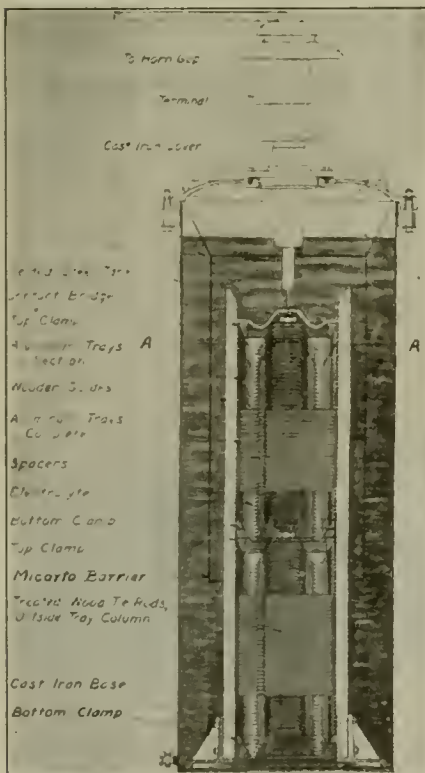 To Horn Gap
Terminal
Cast Iron Cover
Steel Tank
Support Bridge
Top Clamp
A
A
Aluminum Trays
Section
Wooden Guides
Aluminum Trays
Complete
Spacers
Electrolyte
Bottom Clamp
Top Clamp
Micarta Barrier
Treated Wood Tie Rods,
Outside Tray Column
Cast Iron Base
Bottom Clamp